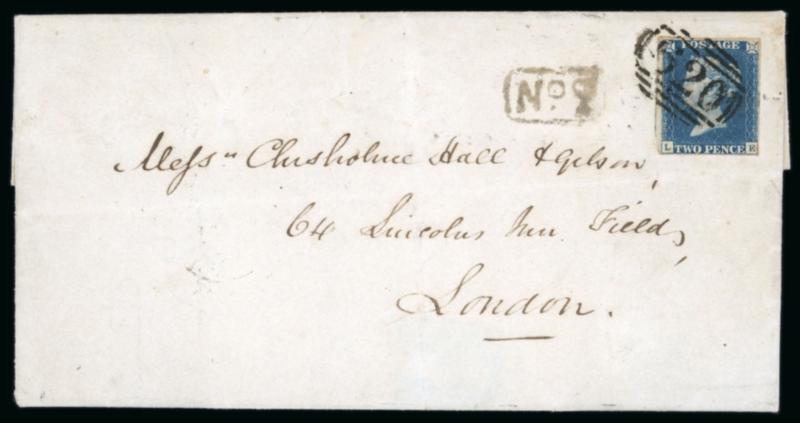 POSTAGE
520
L TWO PENCE E
No.
Messrs Chisholme Hall & Gibson,
64 Lincolns Inn Fields,
London.